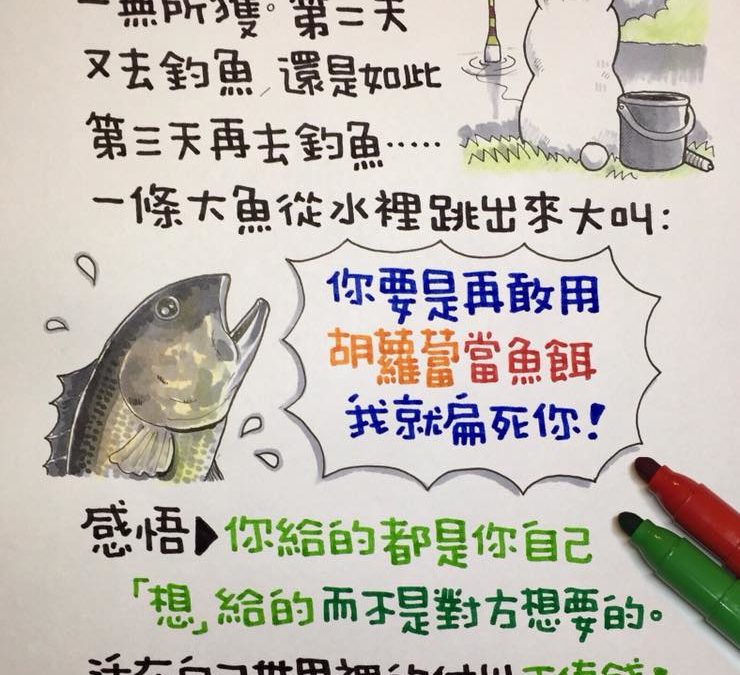 一無所獲。第二天
又去釣魚,還是如此
第三天再去釣魚⋯⋯
一條大魚從水裡跳出來大叫:
你要是再敢用
胡蘿蔔當魚餌
我就扁死你!
感悟▶你給的都是你自己
「想」給的而不是對方想要的。
活在自己世界裡的付出